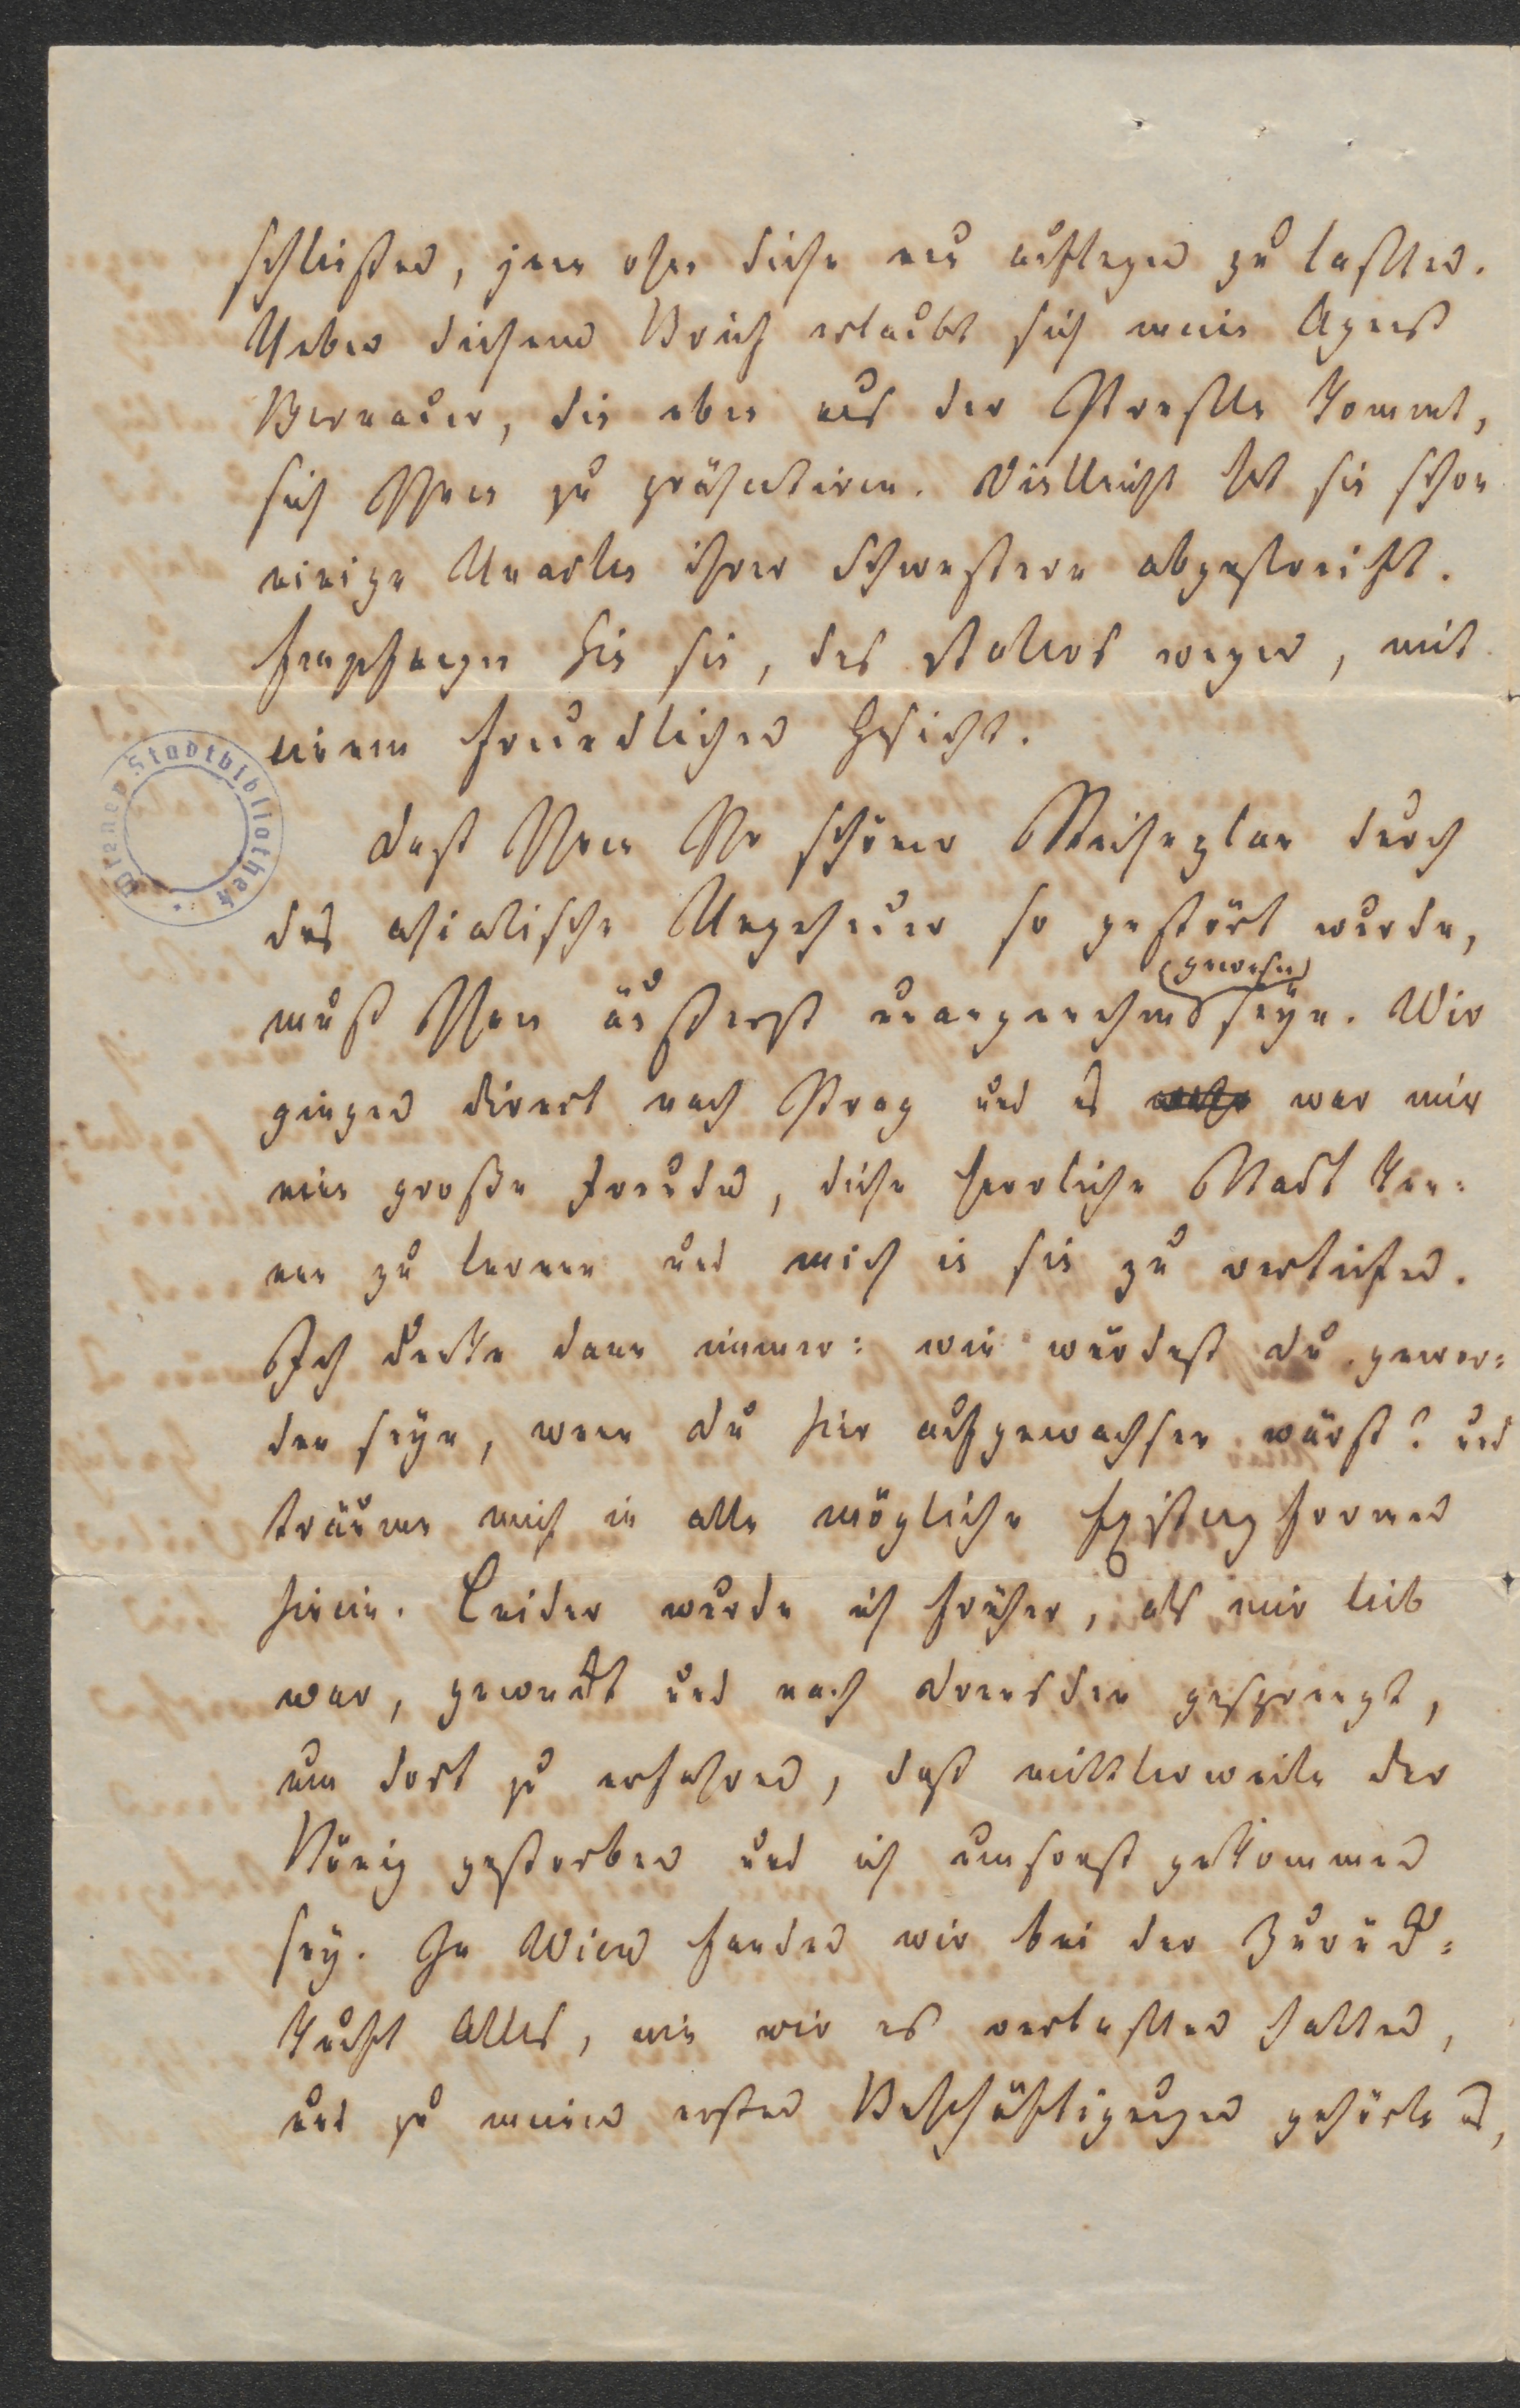 schließen, jene ohne diese neu auflegen zu lassen.
Ueber diesem Brief erlaubt sich meine Agnes
Bernauer, die eben aus der Presse kommt,
sich Ihnen zu präsentiren. Vielleicht hat sie schon
einige Unarten ihrer Schwestern abgestreift.
Empfangen Sie sie, des Vaters wegen, mit
einem freundlichen Gesicht.
Daß Ihnen Ihr schöner Reiseplan durch
das asiatische Ungeheuer so gestört wurde,
muß Ihnen äußerst unangenehm (gewesen) seyn. Wir
gingen direct nach Prag und es war mir
eine große Freude, diese herrliche Stadt ken-
nen zu lernen und mich in sie zu vertiefen.
Ich denke dann immer: wie würdest du gewor-
den seyn, wenn du hier aufgewachsen wärst? und
träume mich in alle mögliche Existenzformen
hinein. Leider wurde ich früher, als mir lieb
war, geweckt und nach Dresden gesprengt,
um dort zu erfahren, daß mittlerweile der
König gestorben und ich umsonst gekommen
sey. In Wien fanden wir bei der Zurück-
kunft Alles, wie wir es verlassen hatten,
und zu meinen ersten Beschäftigungen gehörte es,
Bremer Stadtbibliothek